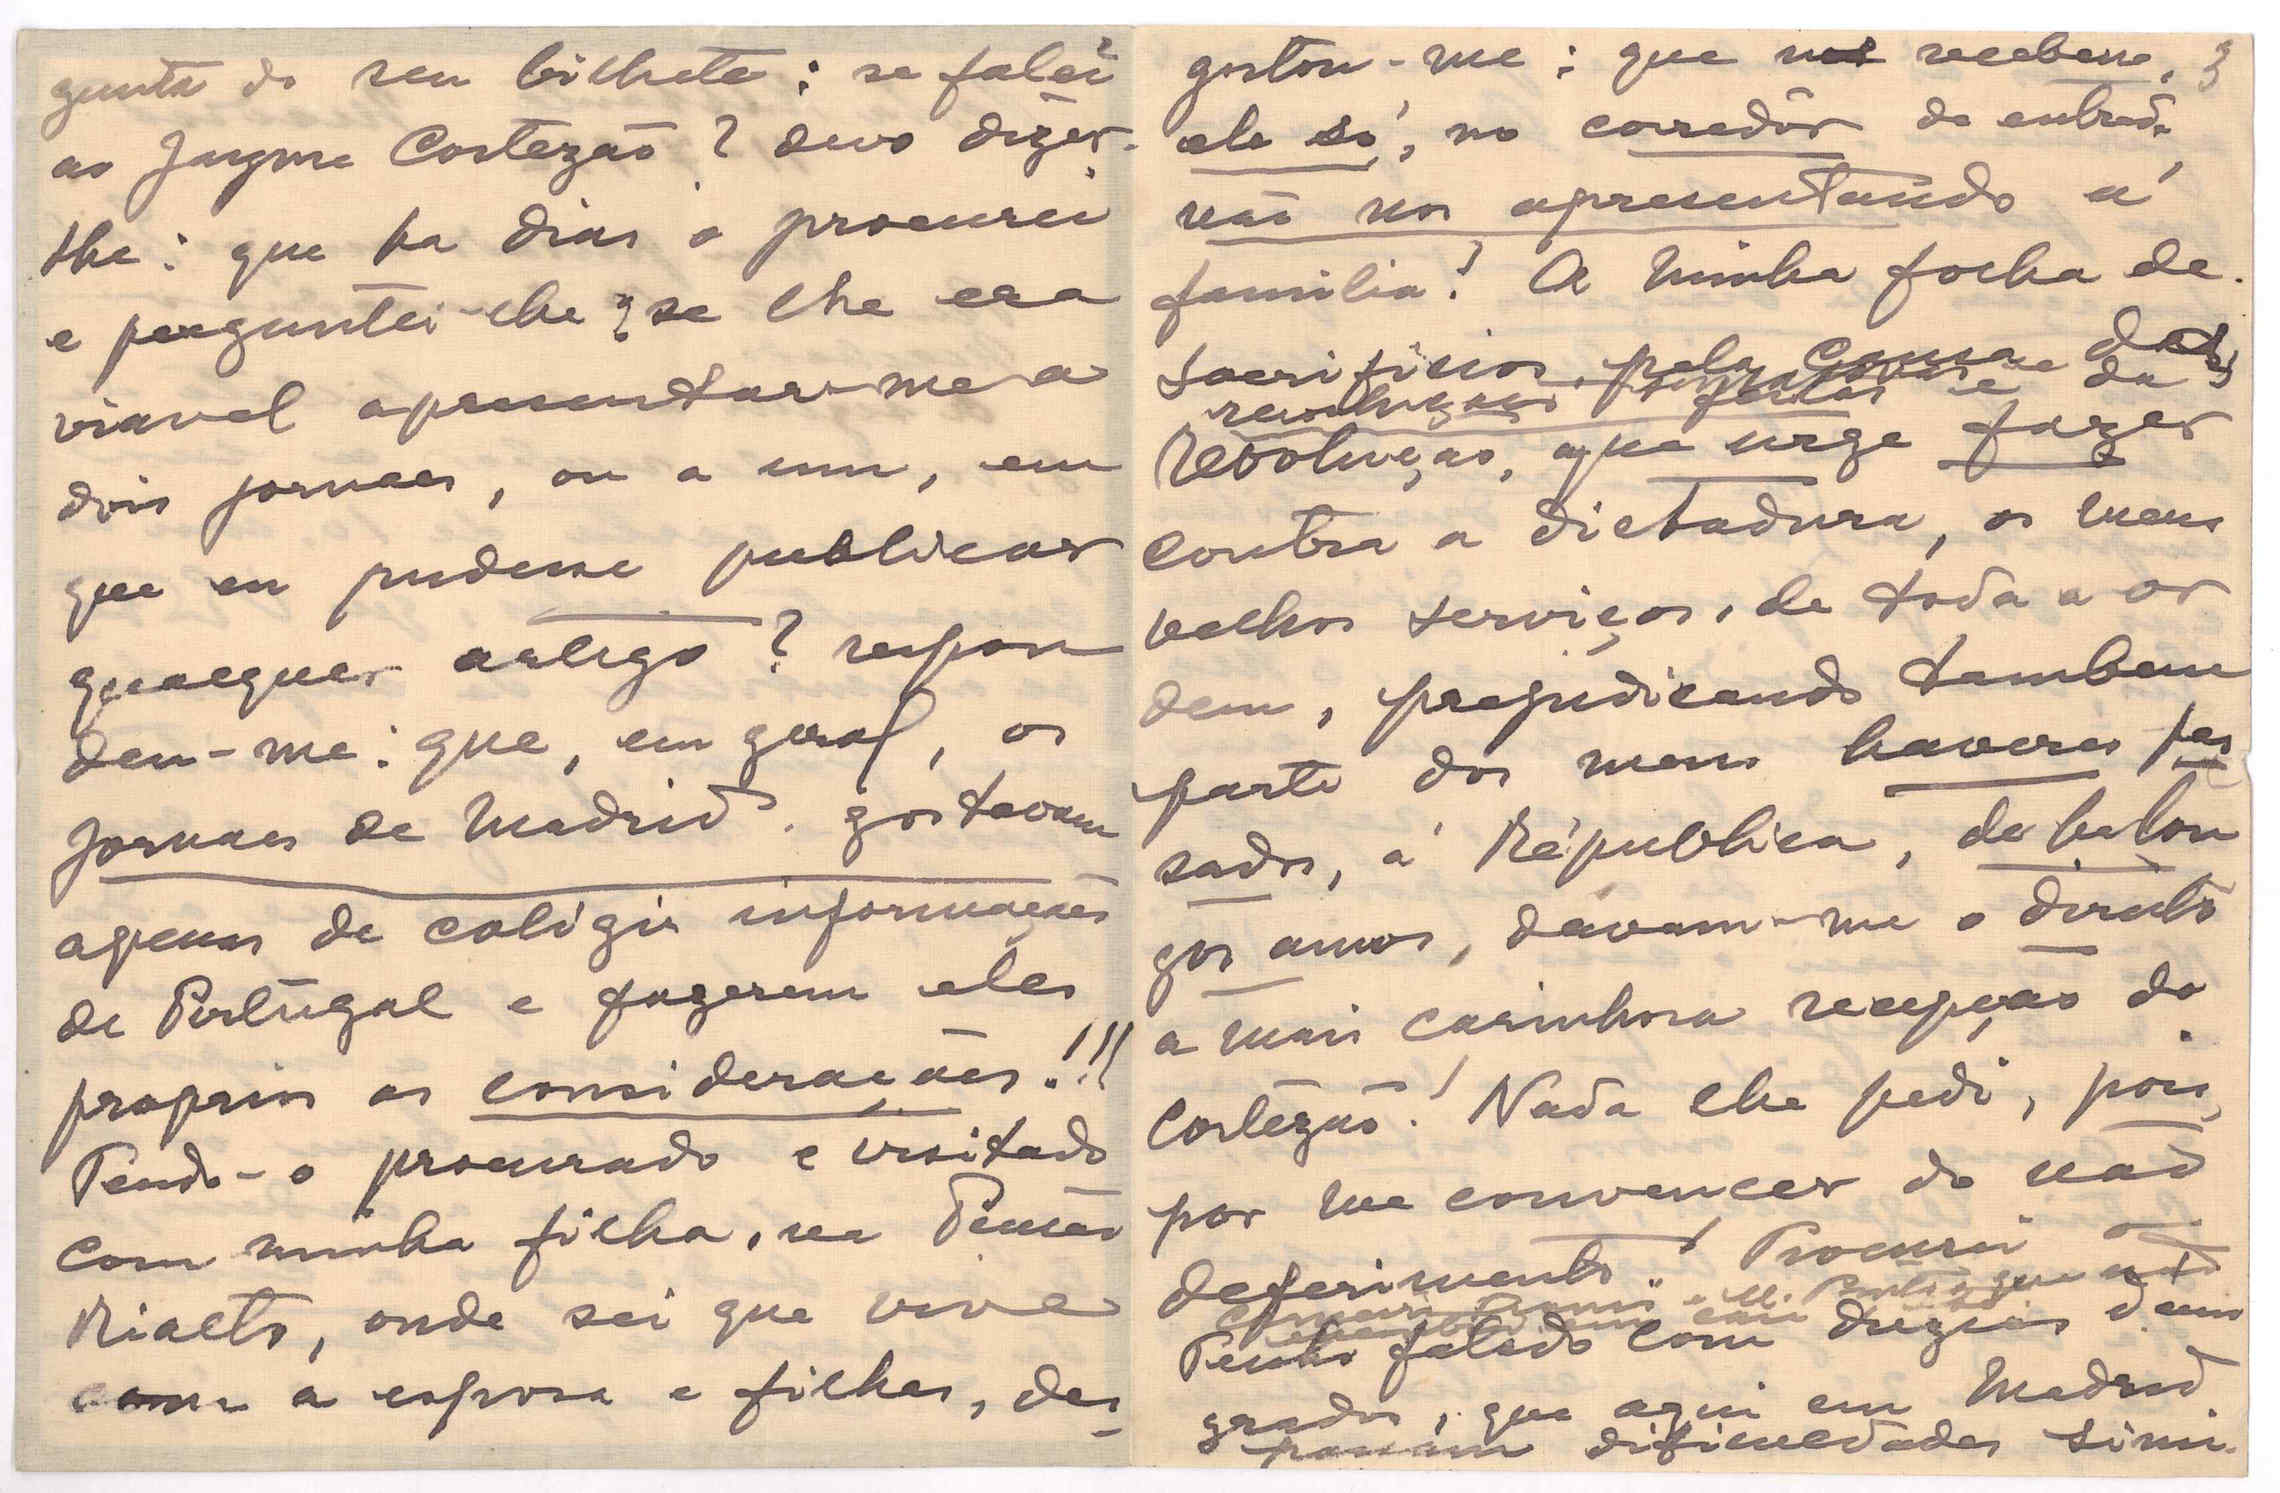 gunta do seu bilhete: se falei
ao Jayme Cortezão? devo dizer-
lhe: que ha dias o procurei
e perguntei-lhe se lhe era
viavel apresentar-me a
dois jornaes, ou a um, em
que eu pudesse publicar
qualquer artigo? respon
deu-me: que, em geral, os
jornaes de Madrid, gostavam
apenas de coligir informações
de Portugal e fazerem eles
proprios as considerações!!!
Tendo-o procurado e visitado
com minha filha, na Pensão
Rialto, onde sei que vive
com a esposa e filhas, des-
gostou-me: que nos recebesse,
3
ele só, no corredôr da entrada,
não nos apresentando á
familia! A minha folha de
sacrificios, pela causa das
revoluções feitas e da
Revolução, que urge fazer
contra a dictadura, os meus
velhos serviços, de toda a or
dem, prejudicando tambem
parte dos meus haveres pas
sados, á Républica, de ha lon
gos anos, davam-me o direito
a mais carinhosa recepção do
Cortezão! Nada lhe pedi, pois,
por me convencer do não
deferimento! Procurei o
que não
Tenho falado com duzias d'emi
grados, que aqui em Madrid
passam dificuldades simi-